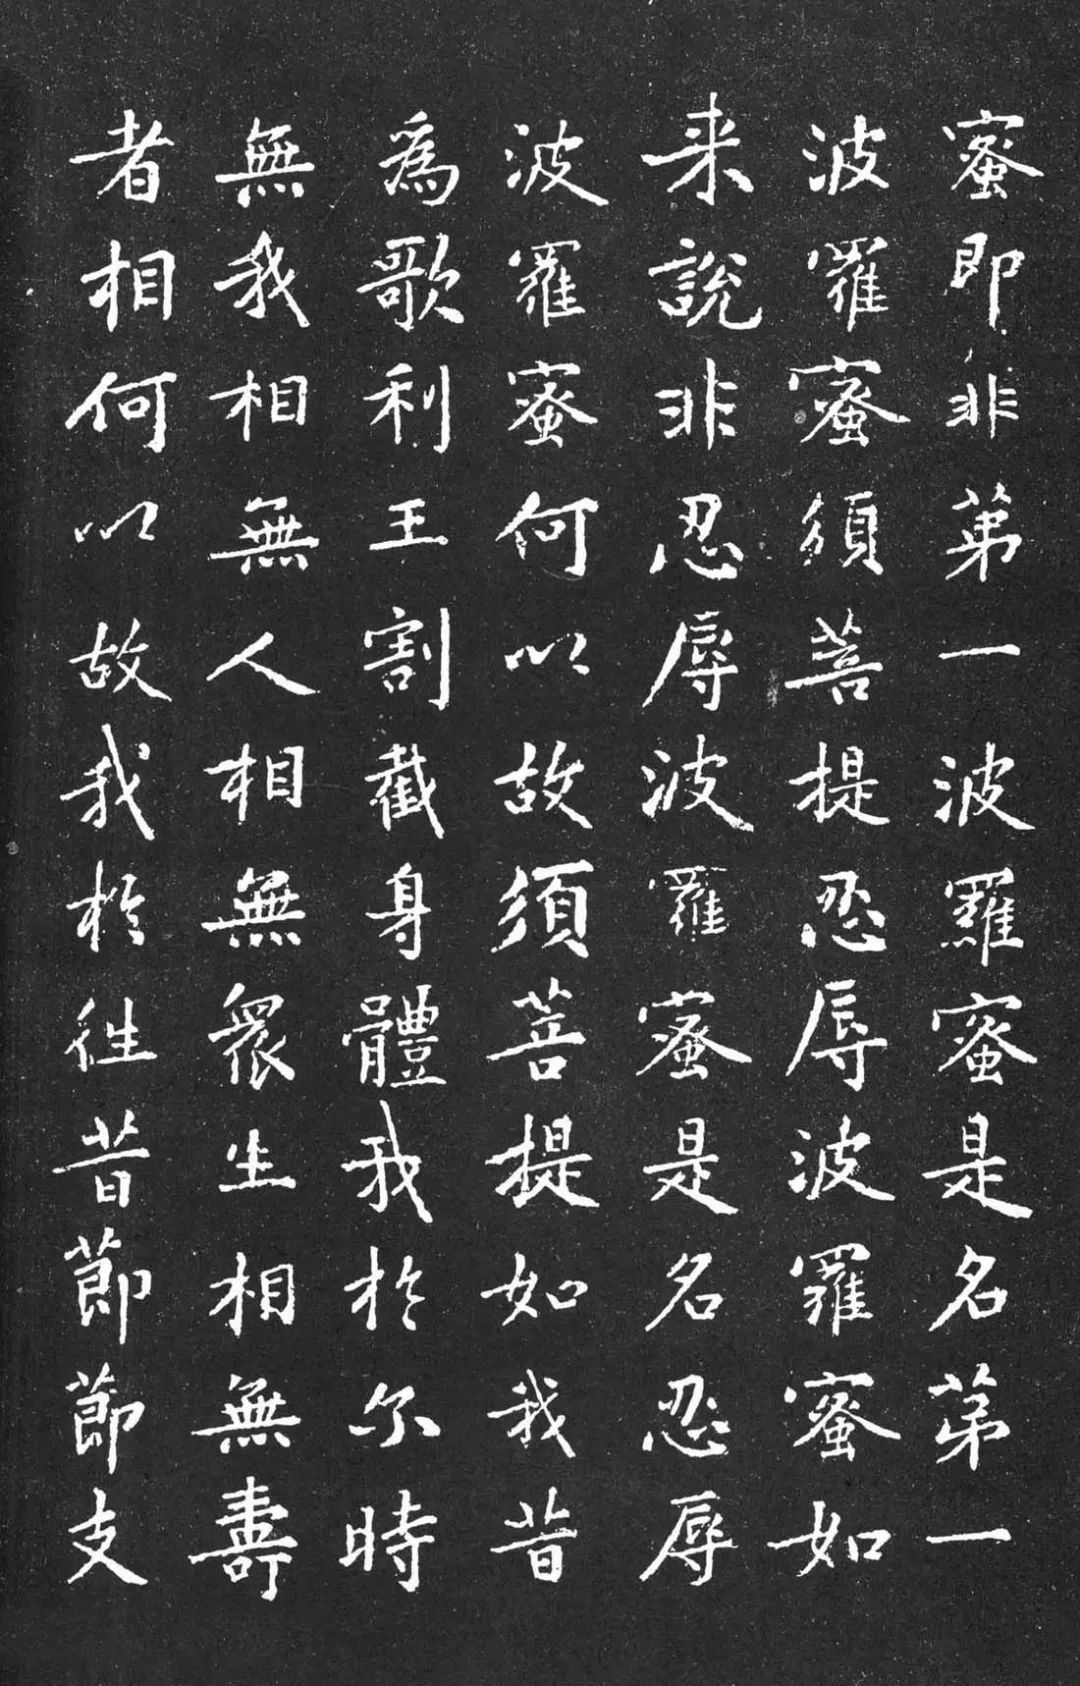 蜜即非第一波羅蜜是名第一
波羅蜜須菩提忍辱波羅蜜如
来說非忍辱波羅蜜是名忍辱
波羅蜜何以故須菩提如我昔
為歌利王割截身體我於尔時
無我相無人相無眾生相無壽
者相何以故我於往昔節節支